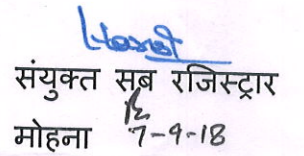 संयुक्त सब रजिस्ट्रार
मोहना 7-9-18